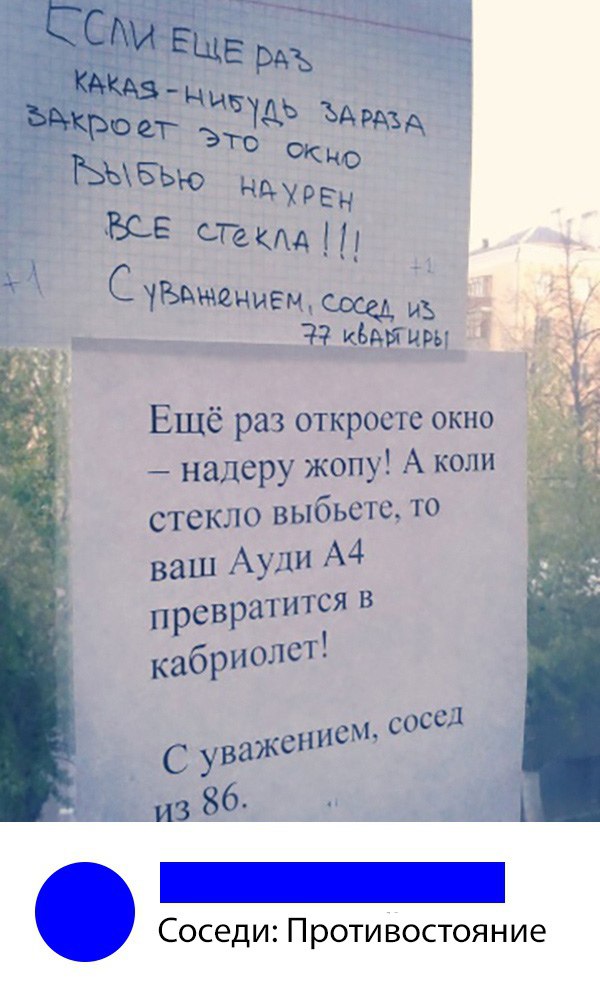 ЕСЛИ ЕЩЕ РАЗ
КАКАЯ-НИБУДЬ ЗАРАЗА
ЗАКРОЕТ ЭТО ОКНО
ВЫБЬЮ НАХРЕН
ВСЕ СТЕКЛА!!!
+1 +1
С УВАЖЕНИЕМ, СОСЕД ИЗ
77 КВАРТИРЫ
Ещё раз откроете окно
– надеру жопу! А коли
стекло выбьете, то
ваш Ауди А4
превратится в
кабриолет!
С уважением, сосед
из 86.
Соседи: Противостояние